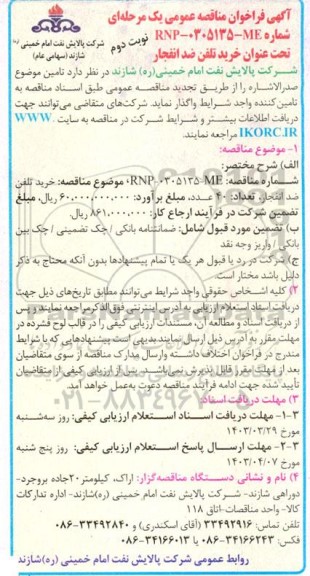 آگهی فراخوان مناقصه عمومی یک مرحله‌ای
شماره RNP-۰۳۰۵۱۳۵-ME
نوبت دوم
تحت عنوان خرید تلفن ضد انفجار
شرکت پالایش نفت امام خمینی (ره)
شازند (سهامی عام)
شرکت پالایش نفت امام خمینی(ره) شازند در نظر دارد تامین موضوع
صدرالاشاره را از طریق تجدید مناقصه عمومی طبق اسناد مناقصه به
تامین کننده واجد شرایط واگذار نماید. شرکت‌های متقاضی می‌توانند جهت
دریافت اطلاعات بیشتر و شرایط شرکت در مناقصه به سایت WWW.
IKORC.IR مراجعه نمایند.
۱- موضوع مناقصه:
الف) شرح مختصر:
شماره مناقصه: RNP-۰۳۰۵۱۳۵-ME؛ موضوع مناقصه: خرید تلفن
ضد انفجار، تعداد: ۴۰ عدد، مبلغ برآورد: ۶۰,۰۰۰,۰۰۰,۰۰۰ ریال، مبلغ
تضمین شرکت در فرآیند ارجاع کار: ۸۶۱,۰۰۰,۰۰۰ ریال.
ب) تضمین مورد قبول شامل: ضمانتنامه بانکی / چک تضمینی / چک بین
بانکی / واریز وجه نقد
ج) شرکت در رد یا قبول هر یک یا تمام پیشنهادها بدون آنکه محتاج به ذکر
دلیل باشد مختار است.
۲) کلیه اشخاص حقوقی واجد شرایط می‌توانند مطابق تاریخ‌های ذیل جهت
دریافت اسناد استعلام ارزیابی به آدرس اینترنتی فوق الذکر مراجعه نمایند. پس
از دریافت اسناد و مطالعه آن، مستندات ارزیابی کیفی را در قالب لوح فشرده در
مهلت مقرر به آدرس ذیل ارسال نمایند بدیهی است پیشنهادهایی که با شرایط
مندرج در فراخوان اختلاف داشته و ارسال مدارک مناقصه از سوی متقاضیان
بعد از مهلت مقرر قابل پذیرش نمی‌باشد. پس از ارزیابی کیفی از متقاضیان
تأیید شده جهت ادامه فرآیند مناقصه دعوت به‌عمل خواهد آمد.
۳) مهلت دریافت اسناد:
۱-۳- مهلت دریافت اسناد استعلام ارزیابی کیفی: روز سه‌شنبه
مورخ ۱۴۰۳/۰۳/۲۹
۲-۳- مهلت ارسال پاسخ استعلام ارزیابی کیفی: روز پنج شنبه
مورخ ۱۴۰۳/۰۴/۰۷
۴) نام و نشانی دستگاه مناقصه‌گزار: اراک، کیلومتر ۲۰ جاده بروجرد-
دوراهی شازند- شرکت پالایش نفت امام خمینی (ره) شازند- اداره تدارکات
کالا- واحد مناقصات- اتاق ۱۱۸
تلفن تماس: ۳۳۴۹۲۹۱۶ (آقای اسکندری) و ۳۳۴۹۲۸۴۰-۰۸۶
فکس: ۳۴۱۶۶۲۴۳-۰۸۶ یا ۳۴۱۶۶۰۱۳-۰۸۶
روابط عمومی شرکت پالایش نفت امام خمینی (ره)شازند